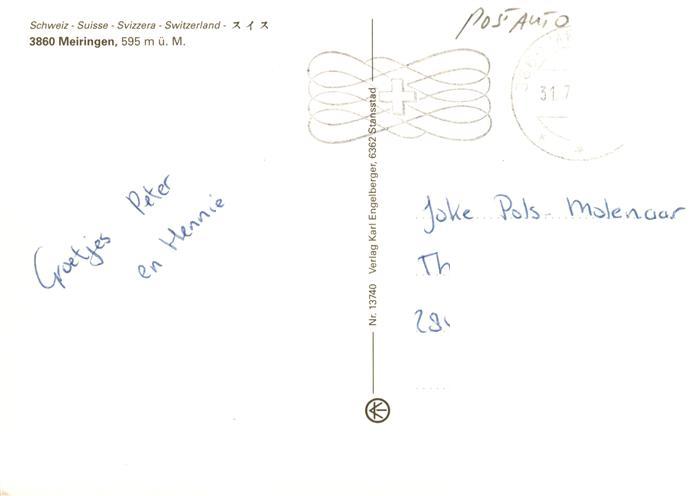 Schweiz - Suisse - Svizzera - Switzerland - スイス
3860 Meiringen, 595 m ü. M.
POSTAUTO
31.7
Groetjes Peter
en Hennie
Nr. 13740 Verlag Karl Engelberger, 6362 Stansstad
Joke Pols-Molenaar
Th